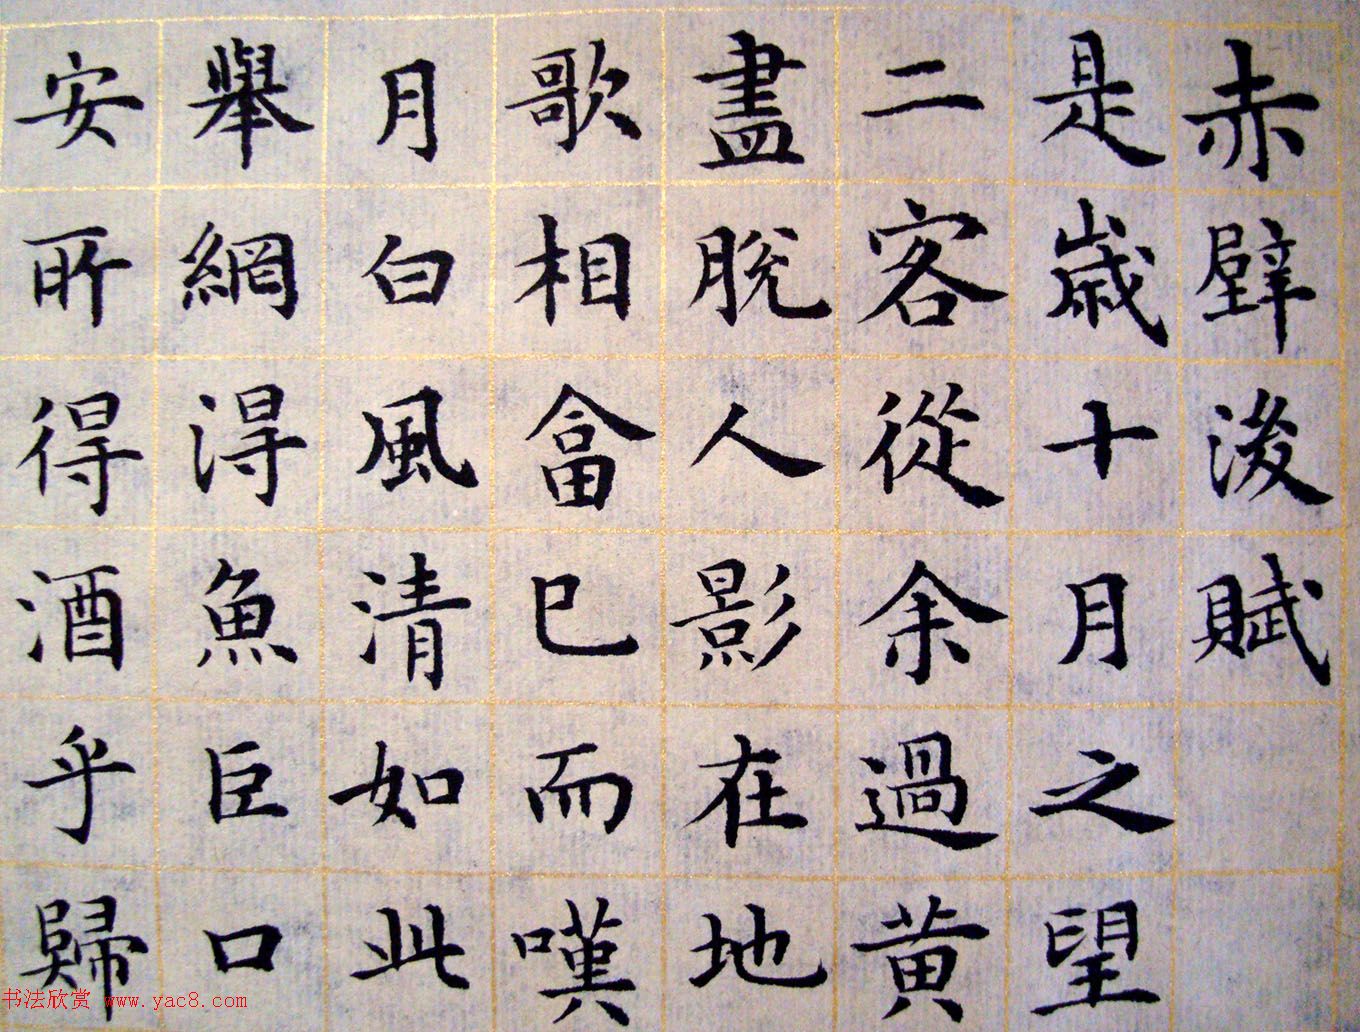 赤壁後賦
是歲十月之望
二客從余過黄
盡脫人影在地
歌相畣已而嘆
月白風清如此
舉網得魚巨口
安所得酒乎歸
书法欣赏 www.yac8.com